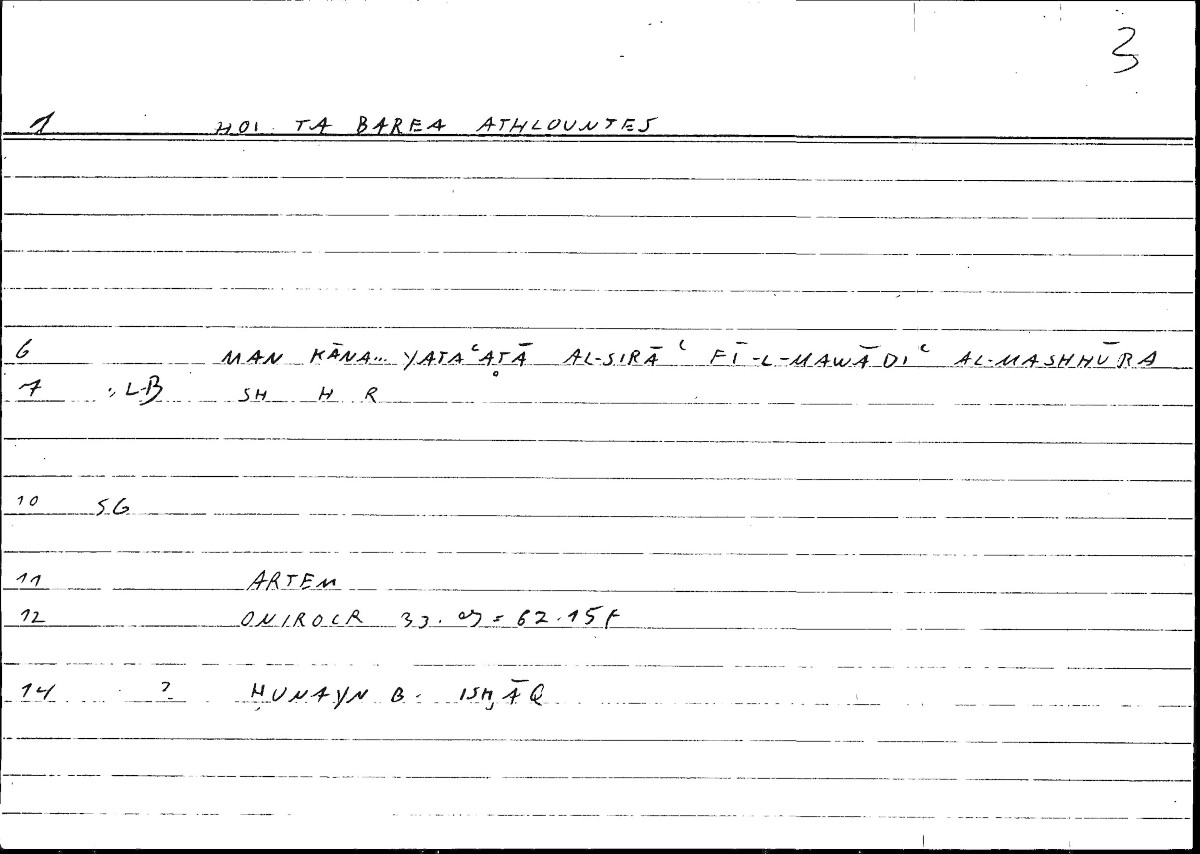 3
1 HOI TA BAREA ATHLOUNTES
6 MAN KĀNA... YATAʿAṬĀ AL-SIRĀʿ FĪ-L-MAWĀDIʿ AL-MASHHŪRA
7 L-B SH H R
10 SG
11 ARTEM
12 ONIROCR 33. = 62.15f
14 ? ḤUNAYN B. ISḤĀQ